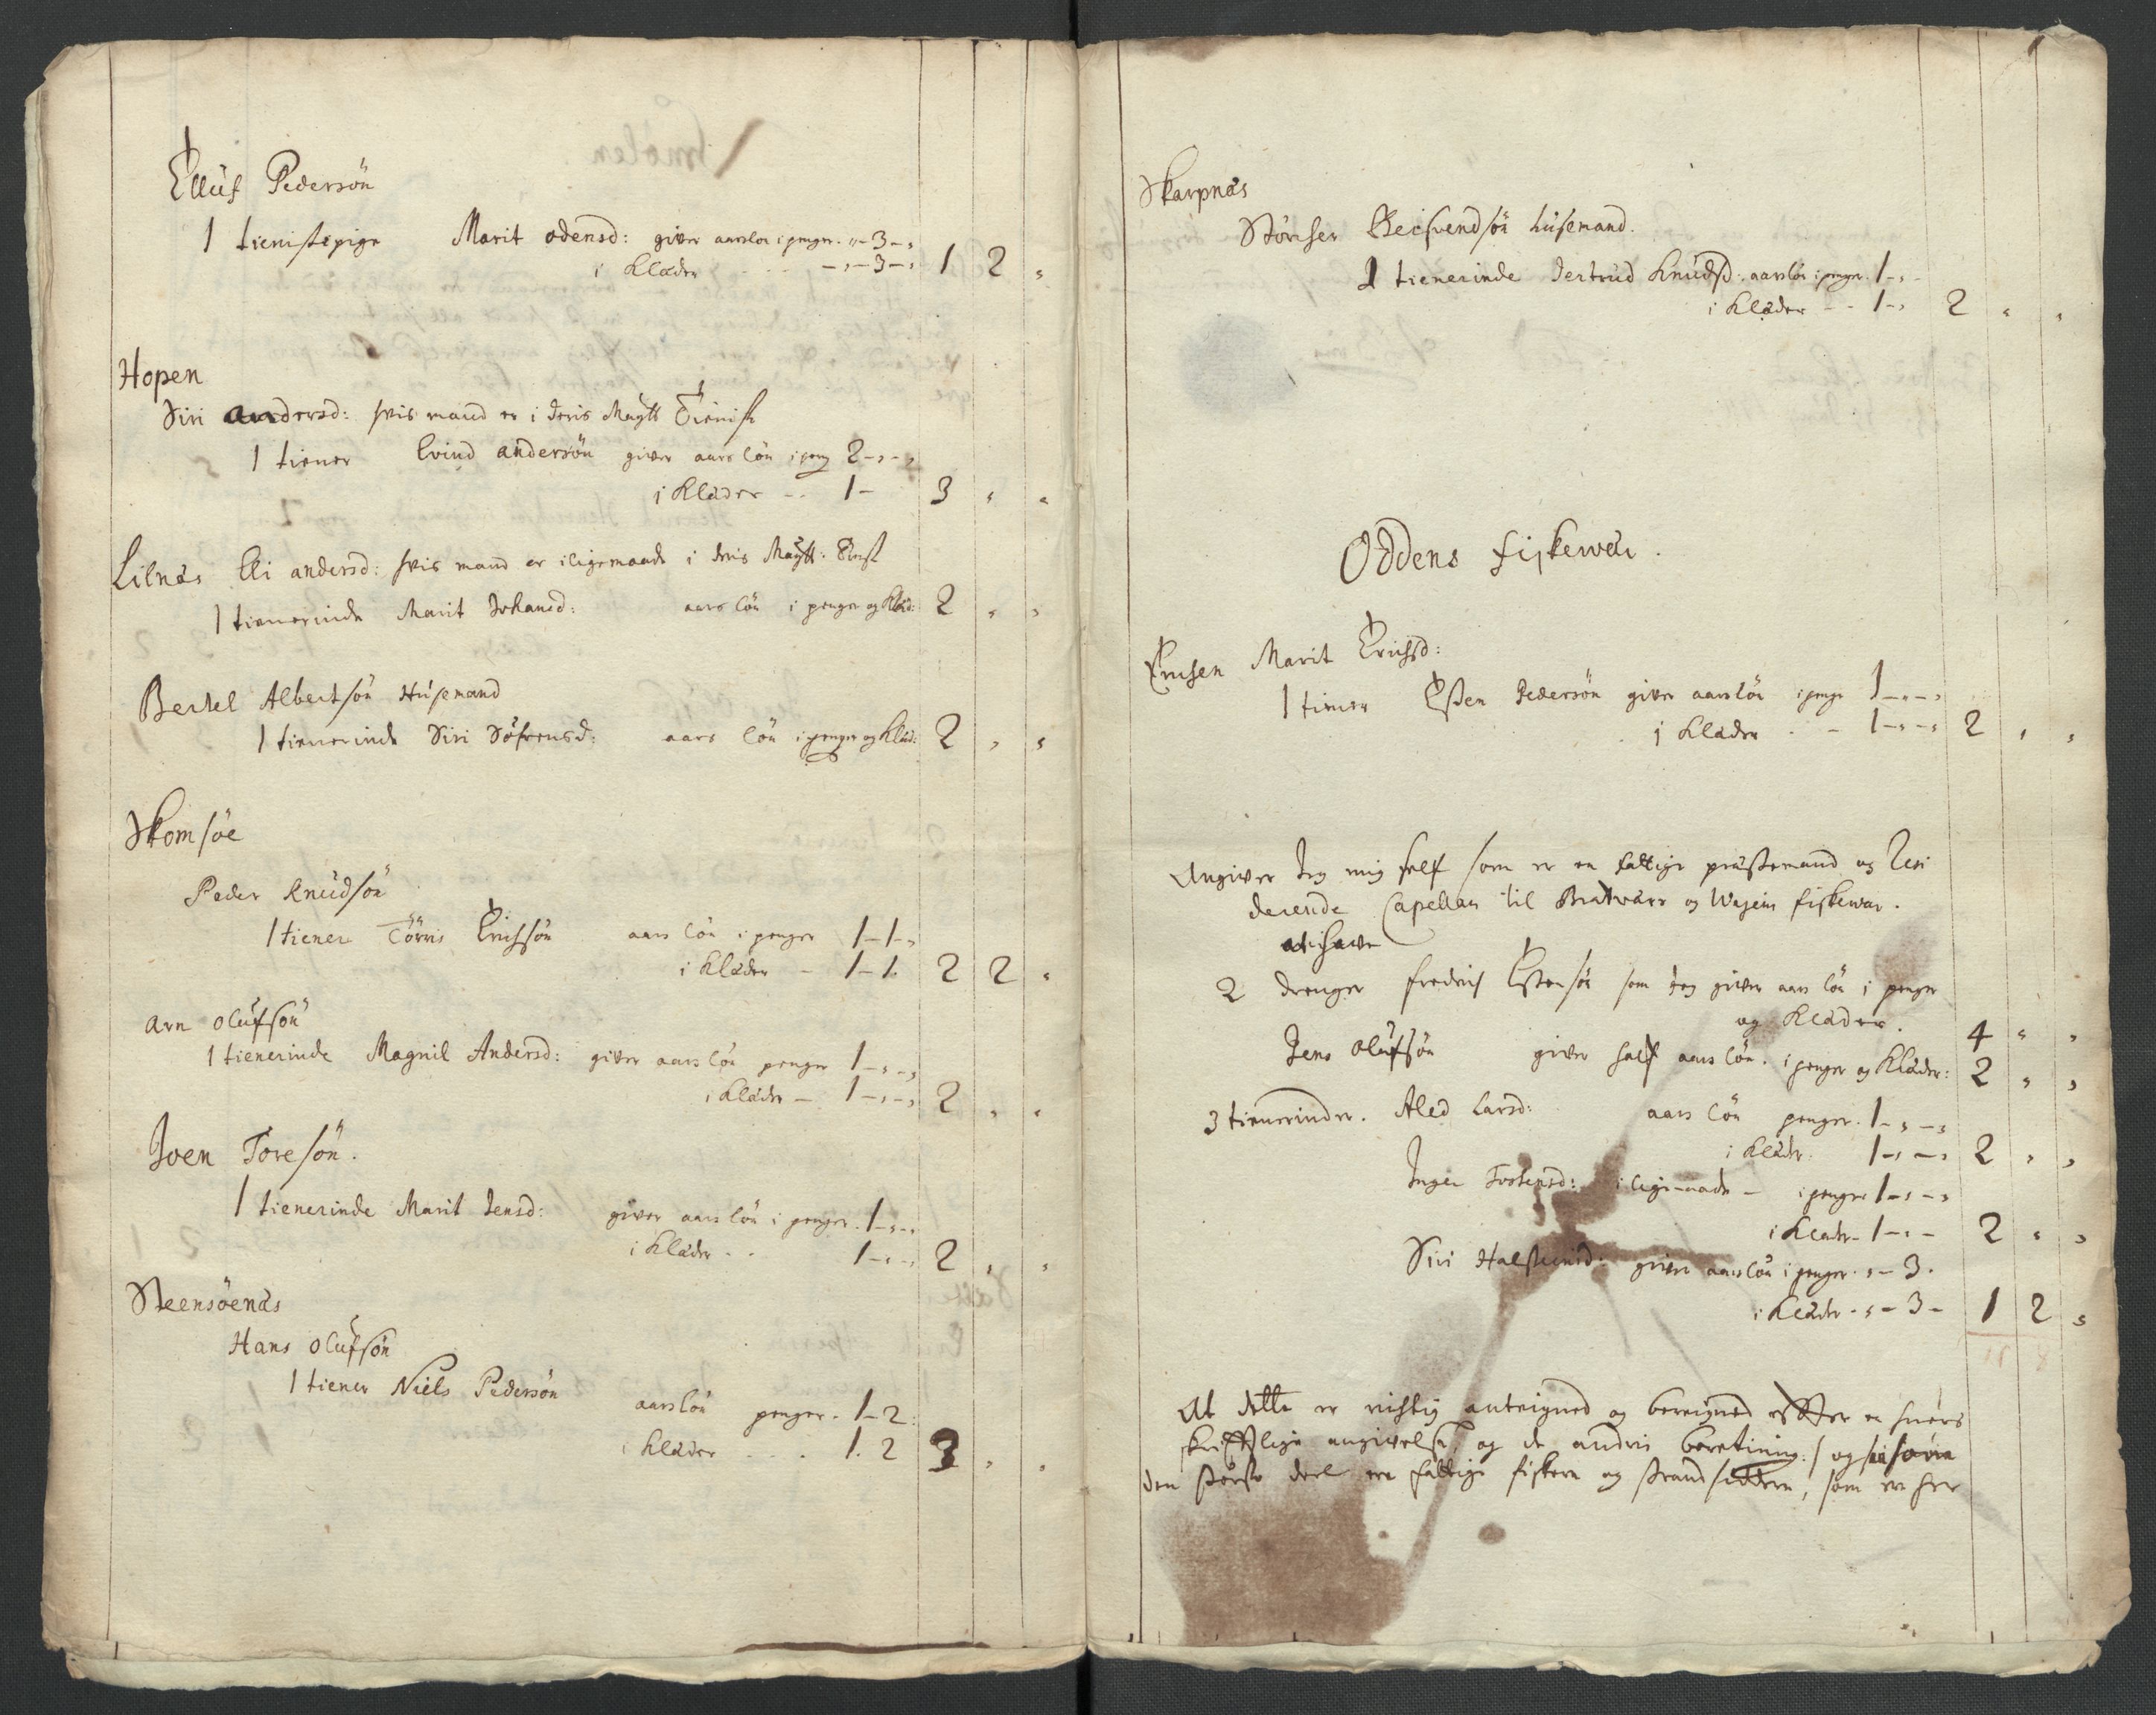 Elluf Pedersön
1 tienistepige Marit odensd: giver aarslön i penger. "-3-,
i Klæder - - - -,-3-, 1 2 ,
Hopen
Siri andersd: hvis mand er i deris Maÿtt Tienist
1 tiener Evind andersön giver aars lön i peng 2-,-,
i Klæder - - 1- 3 , ,
Lilnæs Eli andersd: hvis mand er iligemaade i deris Maÿtt:
1 tienerinde Marit Johansd: aars lön i penger og Klæd: 2 , ,
Bertel Albertsön Huusmand
1 tienerinde Siri Söfrensd: aars lön i penger og Klæd: 2 , ,
Skomsöe
Peder Knudsön
1 tiener Törris Erichsön aars lön i penger 1-1-,
i Klæder - 1-1. 2 2 ,
Arn olufsön
1 tienerinde Magnil Andersd: giver aars lön penger 1-,-,
i Klæder - 1-,-, 2 , ,
Joen Toresön.
1 tienerinde Marit Jensd: giver aars lön i penger. 1-,-,
i Klæder - - 1-,-, 2 , ,
Steensöenæs
Hans olufsön
1 tiener Niels Pedersön aarslön penger. 1-2:
i Klæder . . . 1. 2 3 , ,
Skarpnæs
Störcker husemand.
1 tienerinde Jertrud Knudsd: aarslön i penger. 1-,-
i Klæder - - 1-, 2 , ,
Oddens fiskevær.
Marit Erichsd:
1 tiener Esten Pedersön giver aarslön i penge 1-,-,
i Klæder . - 1-,-, 2 , ,
Angiver Jeg mig self som er en fattige præstemand og Resi
derende Capellan til Bratvær og Wejem fiskevær.
at have
2 drenger fredrich Estensön som Jeg giver aars lön i penger
og Klæder. 4 , ,
Jens Olufsön giver half aars lön. i penger og Klæder: 2 , ,
3 tienerinder. Aled Larsd: aars lön penger. 1-,-,
i Klæder. 1-,-, 2 , ,
Inger Torstensd: i ligemaade - i penger 1-,-,
i Klæder- 1-,- 2 , ,
Siri Halsteensd: giver aarslön i penger. ,-3.
i Klæder - ,-3- 1 2 ,
At dette er rigtig anteigned og beregned effter en hvers
skrifftlige angivelse, og de andris beretning: / og
den störste deel ere fattige fiskere og strandsiddere, som er her